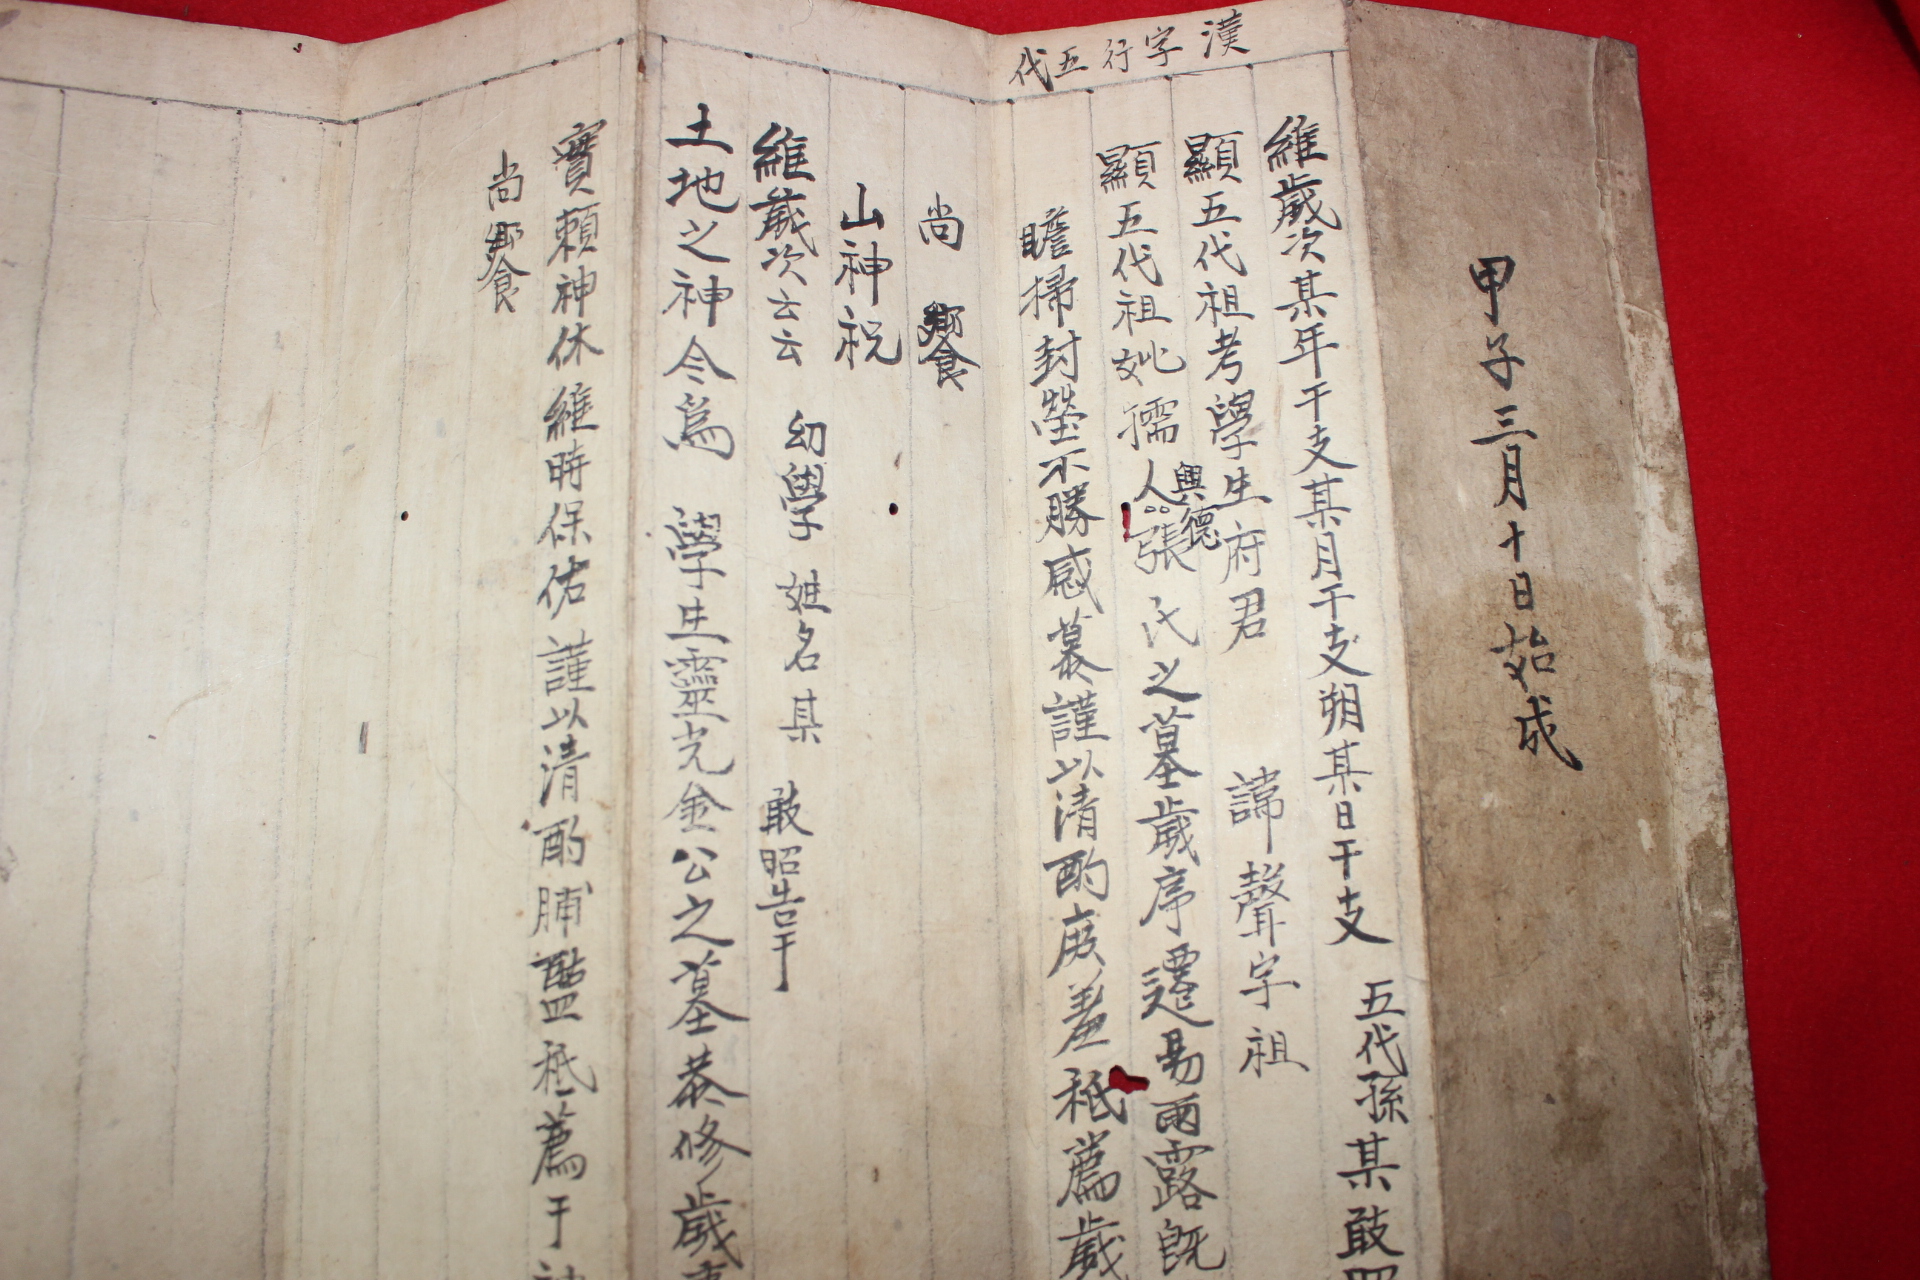 甲子三月十日始成
漢字行五代
維歲次某年干支某月干支朔某日干支 五代孫某敢昭
顯五代祖考學生府君 諱聲字祖
顯五代祖妣孺人興德張氏之墓歲序遷易雨露旣
瞻掃封塋不勝感慕謹以清酌庶羞祗薦歲
尚饗
山神祝
維歲次云云 幼學 姓名某 敢昭告于
土地之神今爲 學生靈光金公之墓恭修歲事
實賴神休維時保佑謹以清酌脯醢祗薦于神
尚饗